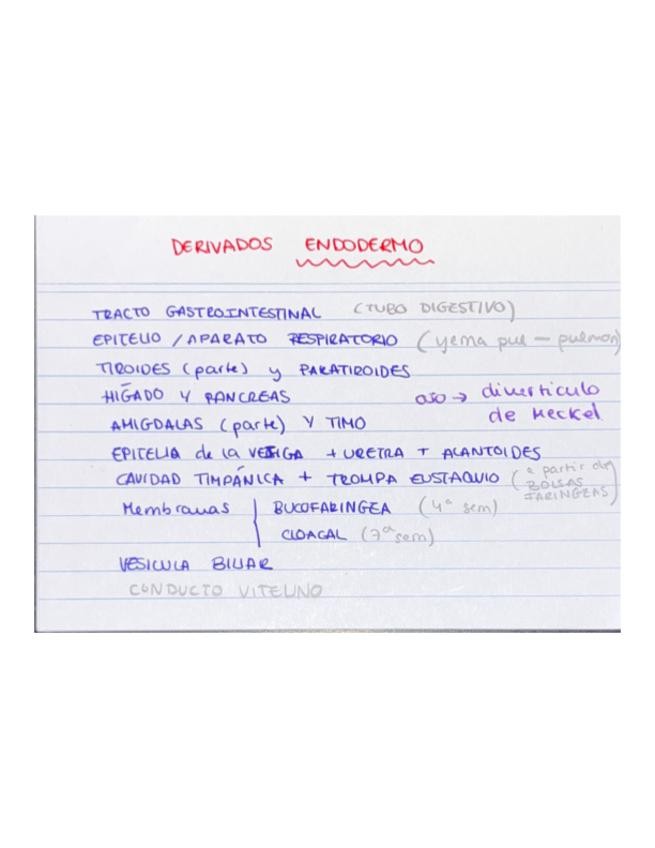 DERIVADOS ENDODERMO
TRACTO GASTROINTESTINAL (TUBO DIGESTIVO)
EPITELIO / APARATO RESPIRATORIO (yema pul — pulmon)
TIROIDES (parte) y PARATIROIDES
HÍGADO Y PANCREAS aso → diverticulo
de Meckel
AMIGDALAS (parte) Y TIMO
EPITELIO de la VEJIGA + URETRA + ALANTOIDES
CAVIDAD TIMPÁNICA + TROMPA EUSTAQUIO (a partir de
BOLSAS
FARINGEAS)
Membranas BUCOFARINGEA (4ª sem)
CLOACAL (7ª sem)
VESICULA BILIAR
CONDUCTO VITELINO